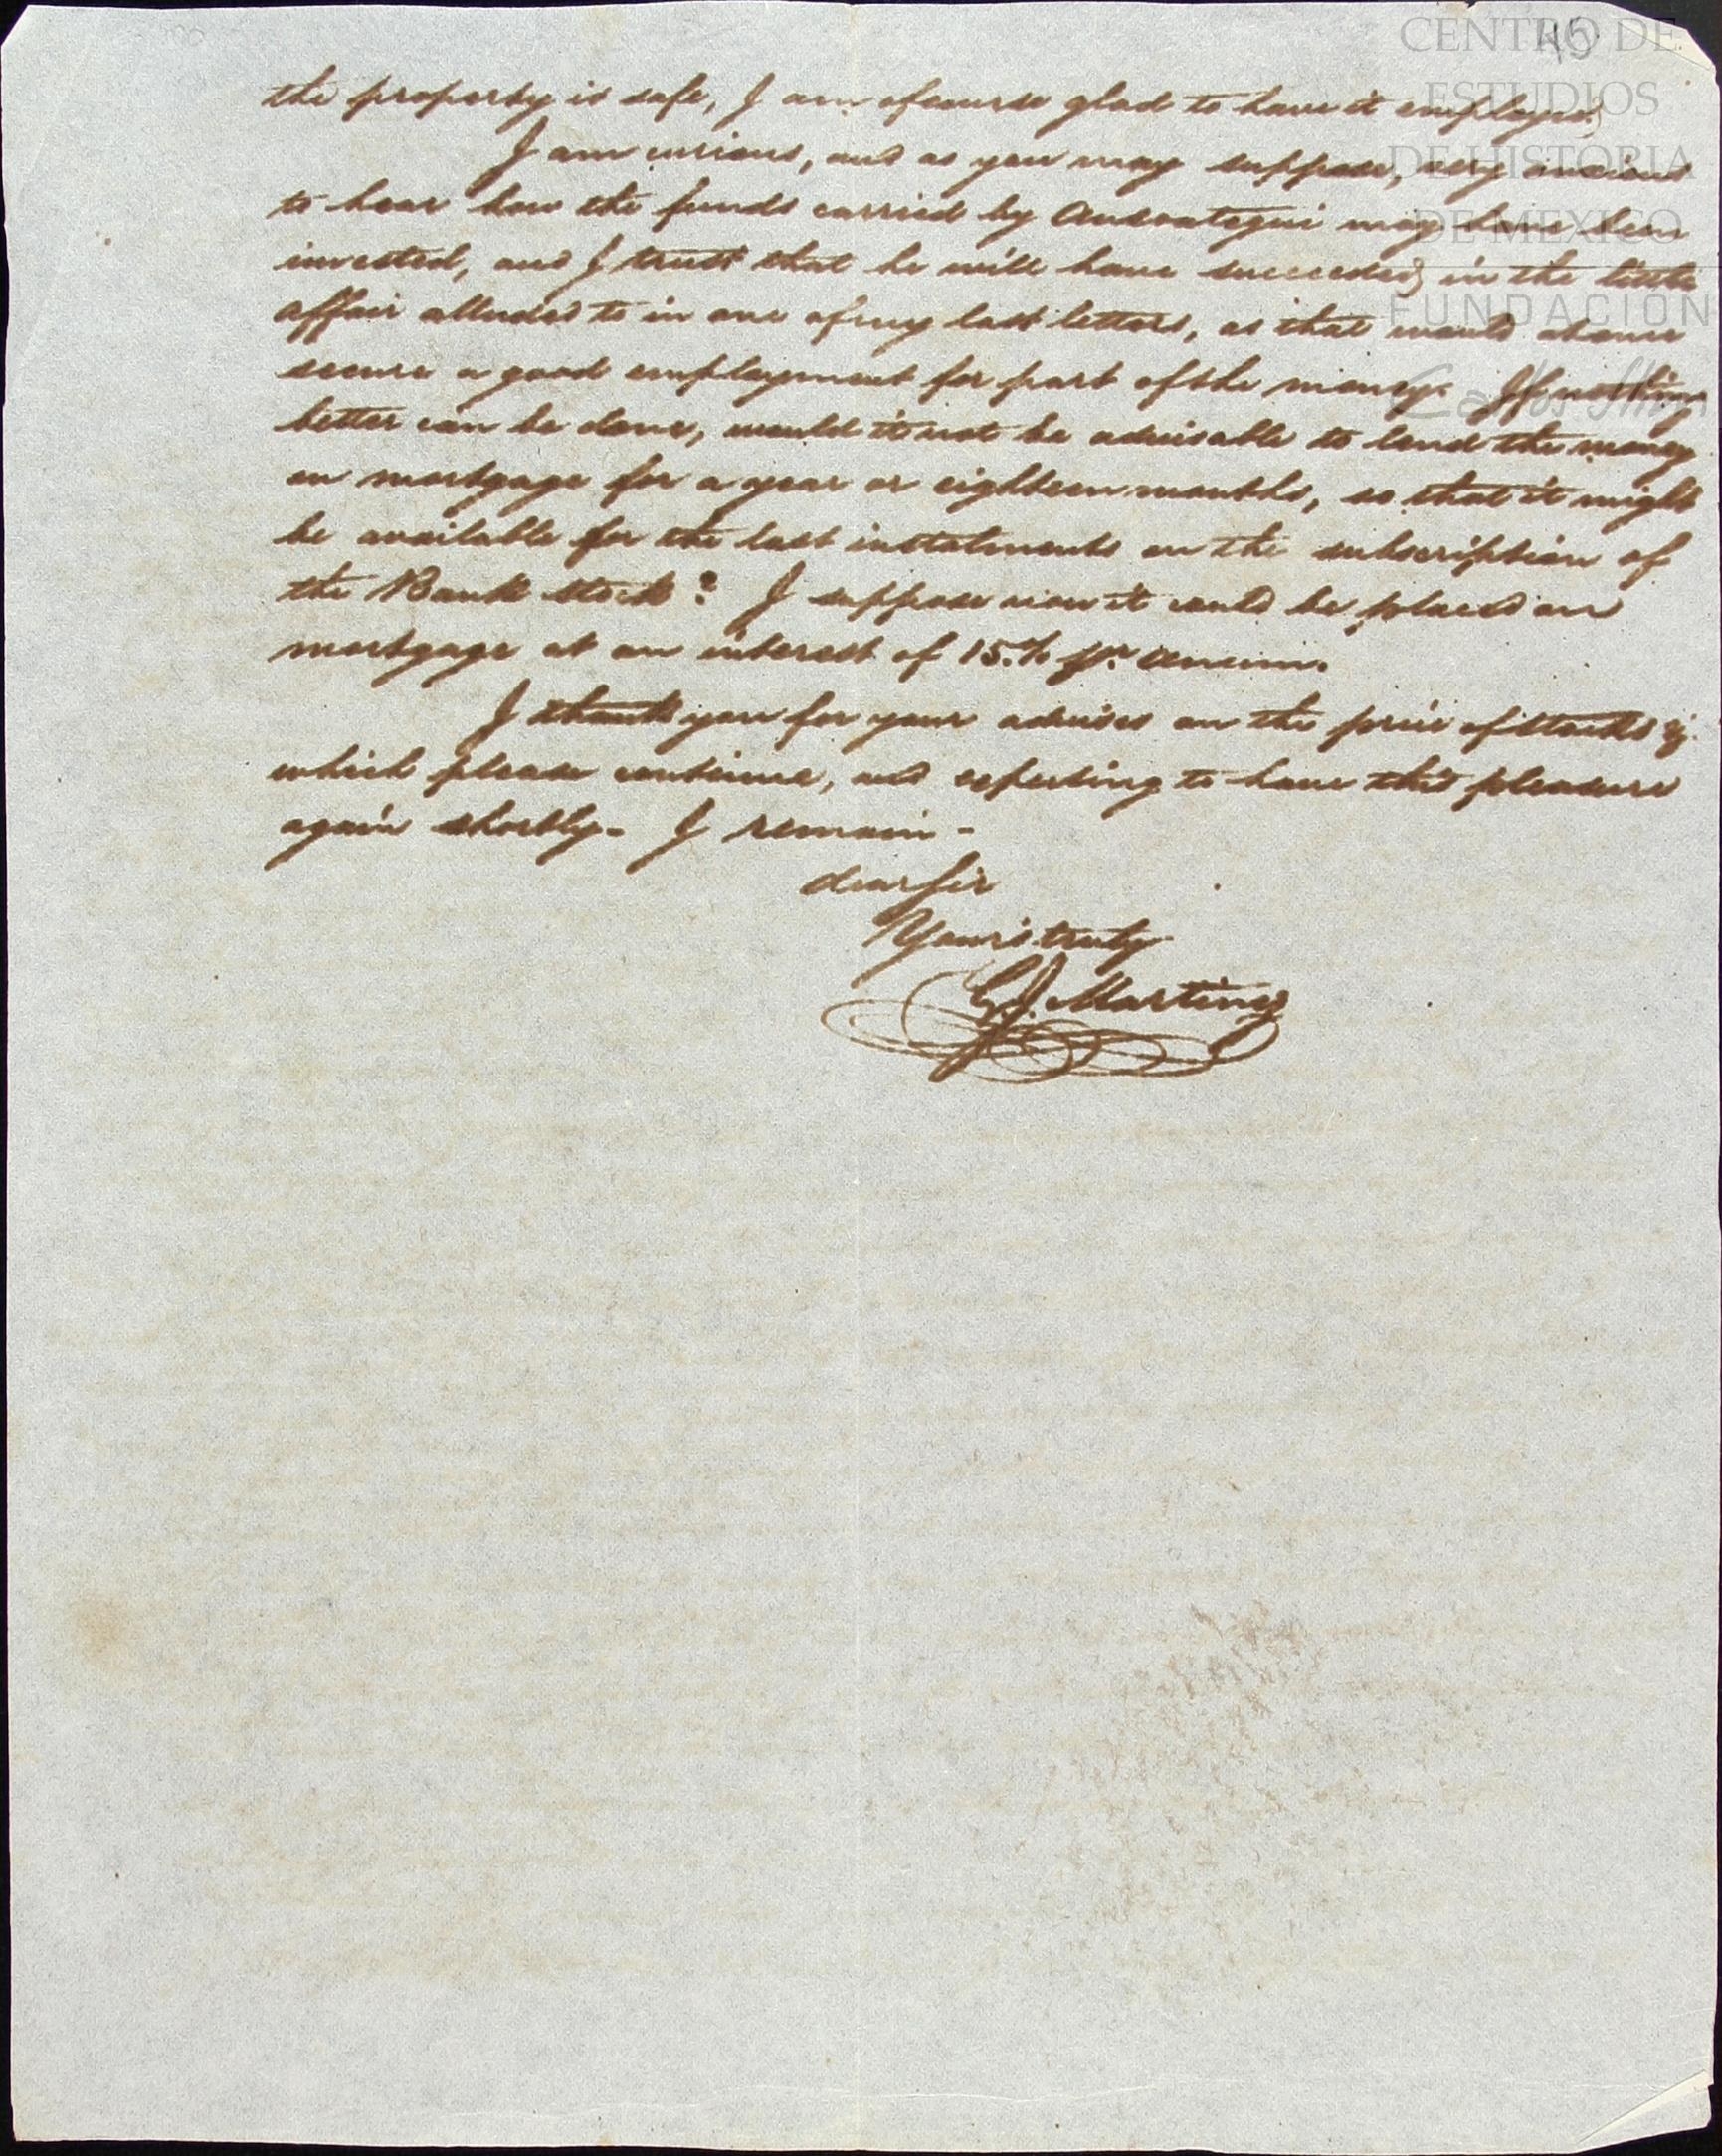 45
CENTRO DE
ESTUDIOS
DE HISTORIA
DE MEXICO
FUNDACION
Carlos Slim
the property is safe, I am of course glad to have it employed,
I am curious, and as you may suppose, very anxious
to hear how the funds carried by Ansoategui may have been
invested, and I trust that he will have succeeded in the little
affair alluded to in one of my last letters, as that would at once
secure a good employment for part of the money. If nothing
better can be done, would it not be advisable to lend the money
on mortgage for a year or eighteen months, so that it might
be available for the last instalments on the subscription of
the Bank stock? I suppose now it could be placed on
mortgage at an interest of 15.% pr. annum.
I thank you for your advises on the price of stocks &.
which please continue, and expecting to have this pleasure
again shortly. I remain -
dear Sir
Yours truly
G. J. Martinez